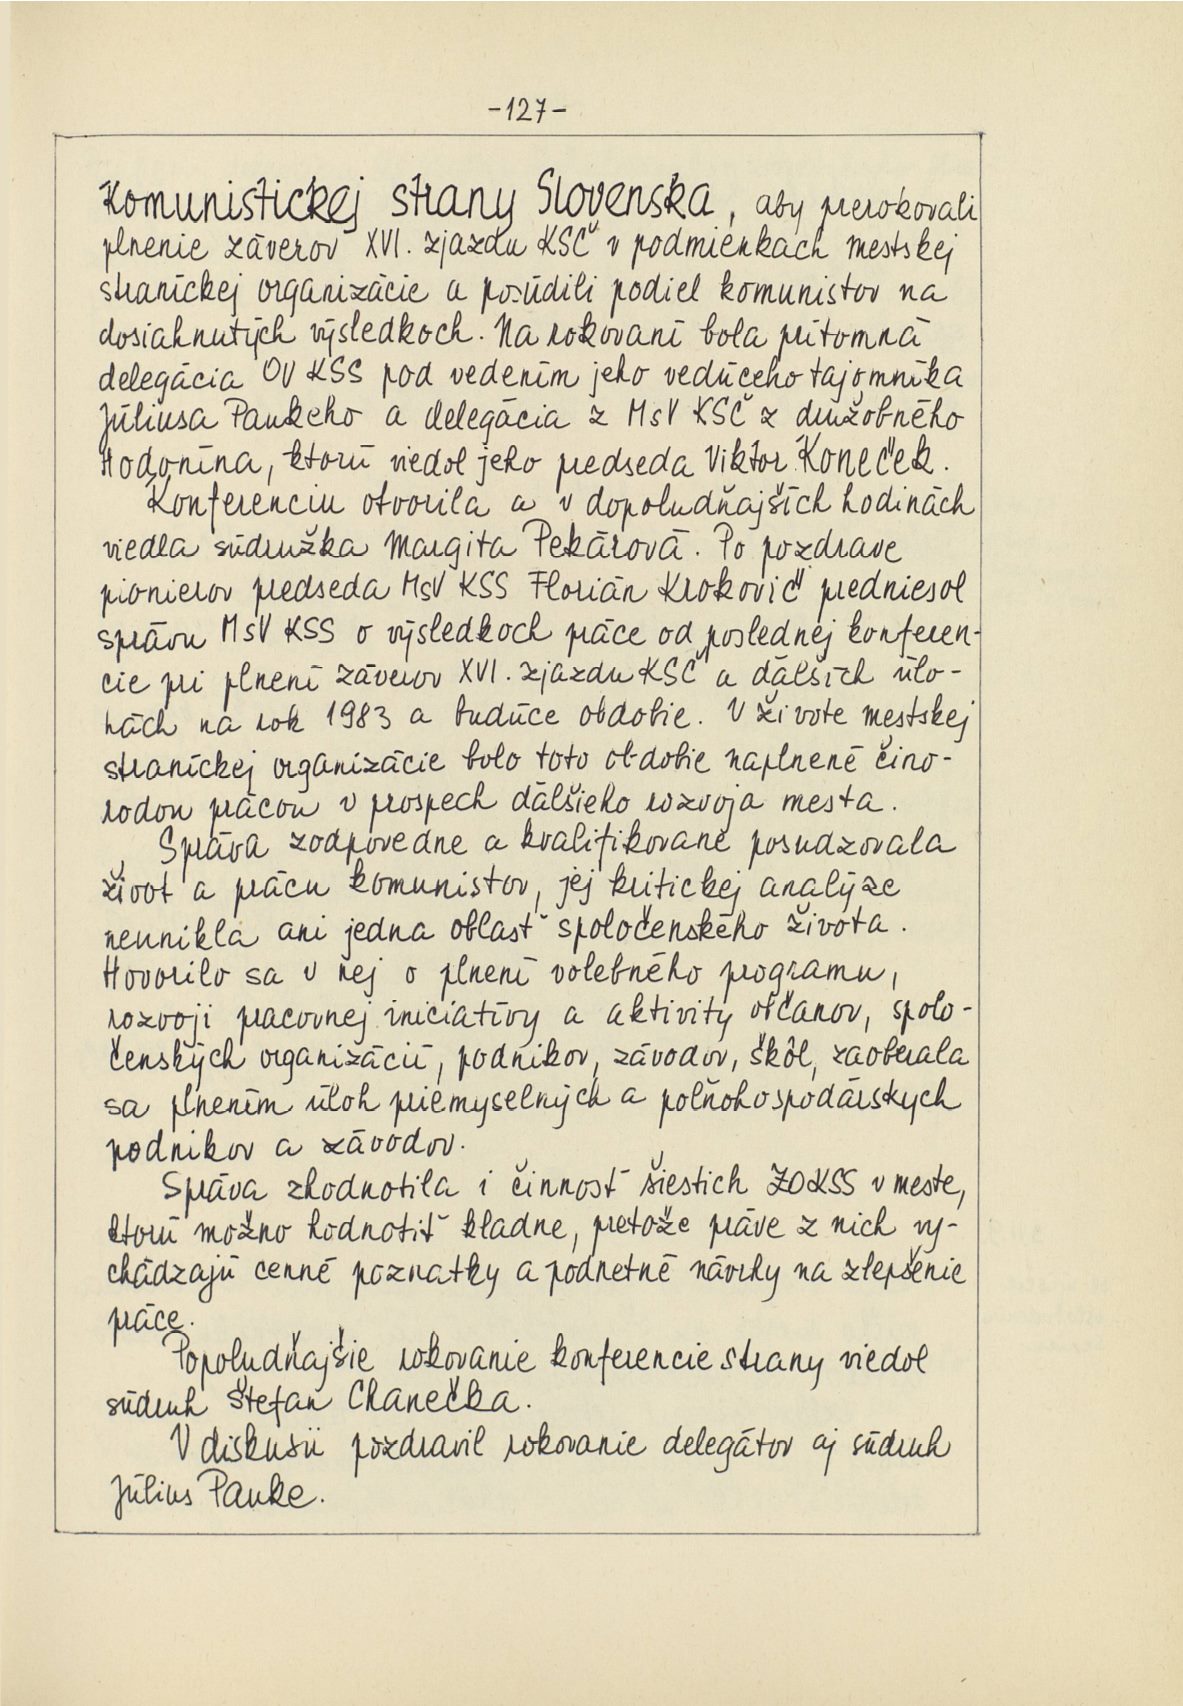 -127-
Komunistickej strany Slovenska, aby prerokovali
plnenie záverov XVI. zjazdu KSČ v podmienkach mestskej
straníckej organizácie a posúdili podiel komunistov na
dosiahnutých výsledkoch. Na rokovaní bola prítomná
delegácia OV KSS pod vedením jeho vedúceho tajomníka
Júliusa Paukeho a delegácia z MsV KSČ z družobného
Hodonína, ktorú viedol jeho predseda Viktor Koneček.
Konferenciu otvorila a v dopoludňajších hodinách
viedla súdružka Margita Pekárová. Po pozdrave
pionierov predseda MsV KSS Florián Krokovič predniesol
správu MsV KSS o výsledkoch práce od poslednej konferen-
cie pri plnení záverov XVI. zjazdu KSČ a ďalších úlo-
hách na rok 1983 a budúce obdobie. V živote mestskej
straníckej organizácie bolo toto obdobie naplnené čino-
rodou prácou v prospech ďalšieho rozvoja mesta.
Správa zodpovedne a kvalifikovane posudzovala
život a prácu komunistov, jej kritickej analýze
neunikla ani jedna oblasť spoločenského života.
Hovorilo sa v nej o plnení volebného programu,
rozvoji pracovnej iniciatívy a aktivity občanov, spolo-
čenských organizácií, podnikov, závodov, škôl, zaoberala
sa plnením úloh priemyselných a poľnohospodárskych
podnikov a závodov.
Správa zhodnotila i činnosť šiestich ZO KSS v meste,
ktorú možno hodnotiť kladne, pretože práve z nich vy-
chádzajú cenné poznatky a podnetné návrhy na zlepšenie
práce.
Popoludňajšie rokovanie konferencie strany viedol
súdruh Štefan Chanečka.
V diskusii pozdravil rokovanie delegátov aj súdruh
Július Pauke.